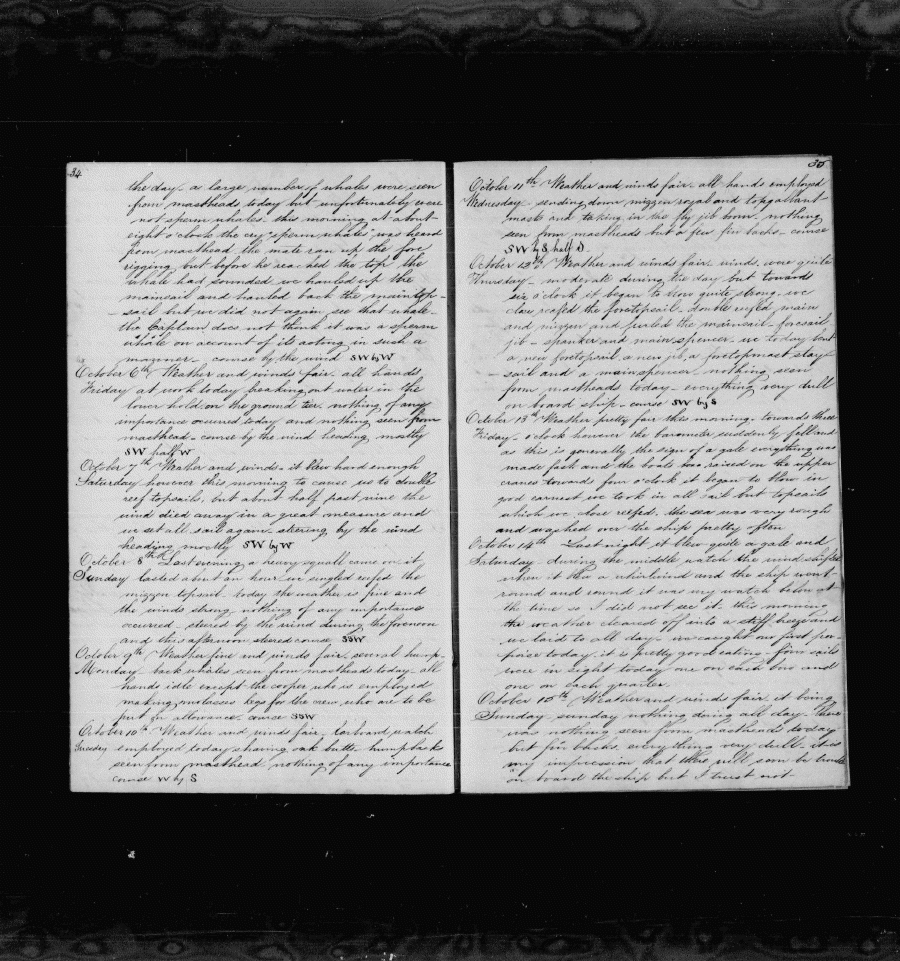 34
the day - a large number of whales were seen
from mastheads today but unfortunately were
not sperm whales. this morning at about
eight o'clock the cry "sperm whales" was heard
from masthead, the mate ran up the fore
rigging, but before he reached the top the
whale had sounded we hauled up the
mainsail and hauled back the maintop-
sail but we did not again see that whale.
the Captain does not think it was a sperm
whale on account of its acting in such a
manner - course by the wind SW by W
October 6th Weather and winds fair. all hands
Friday at work today breaking out water in the
lower hold on the ground tier. nothing of any
importance occured today and nothing seen from
masthead - course by the wind heading mostly
SW half W
October 7th Weather and winds - it blew hard enough
Saturday however this morning to cause us to double
reef topsails, but about half past nine the
wind died away in a great measure and
we set all sail again. steering by the wind
heading mostly SW by W
October 8th Last evening a heavy squall came on it
Sunday lasted about an hour we singled reefed the
mizzen topsail. today the weather is fine and
the winds strong. nothing of any importance
occurred - stered by the wind during the forenoon
and this afternoon stered course SSW
October 9th Weather fine and winds fair. several hump-
Monday back whales seen from mastheads today - all
hands idle except the cooper who is employed
making molases kegs for the crew, who are to be
put on allowance. course SSW
October 10th Weather and winds fair, larboard watch
Tuesday employed today shaving oak butts humpbacks
seen from masthead nothing of any importance
course W by S
35
October 11th Weather and winds fair - all hands employed
Wednesday - sending down mizzen royal and topgallant
masts and taking in the fly jib boom. nothing
seen from mastheads but a few fin backs - course
SW by S half S
October 12th Weather and winds fair. winds were quite
Thursday - moderate during the day but towards
six o'clock it began to blow quite strong. we
close reefed the foretopsail. double reefed main
and mizzen and furled the mainsail - foresail
jib - spanker and main spencer. we today bent
a new foretopsail. a new jib, a foretopmast stay-
sail and a main spencer. nothing seen
from mastheads today - everything very dull
on board ship - course SW by S
October 13th Weather pretty fair this morning. towards three
Friday - o'clock however the barometer suddenly fell and
as this is generally the sign of a gale everything was
made fast and the boats were raised on the upper
cranes towards four o'clock it began to blow in
good earnest we took in all sail but topsails
which we close reefed. the sea was very rough
and washed over the ship pretty often
October 14th Last night it blew quite a gale and
Saturday during the middle watch the wind shifted
when it blew a whirlwind and the ship went
round and round it was my watch below at
the time so I did not see it. this morning
the weather cleared off into a stiff breeze and
we laid to all day. we caught our first por-
poise today. it is pretty good eating - four sails
were in sight today one on each bow and
one on each quarter.
October 15th Weather and winds fair it being
Sunday sunday nothing doing all day. there
was nothing seen from mastheads today
but fin backs everything very dull - it is
my impression that there will soon be trouble
on board the ship but I trust not